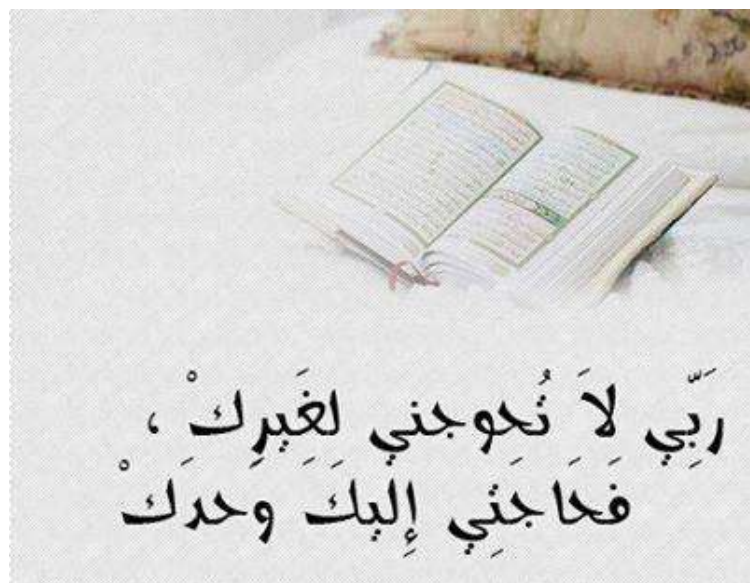 رَبِّي لَا تُحوِجني لِغَيرِكْ ،
فَحَاجَتِي إِليكَ وَحدَكْ